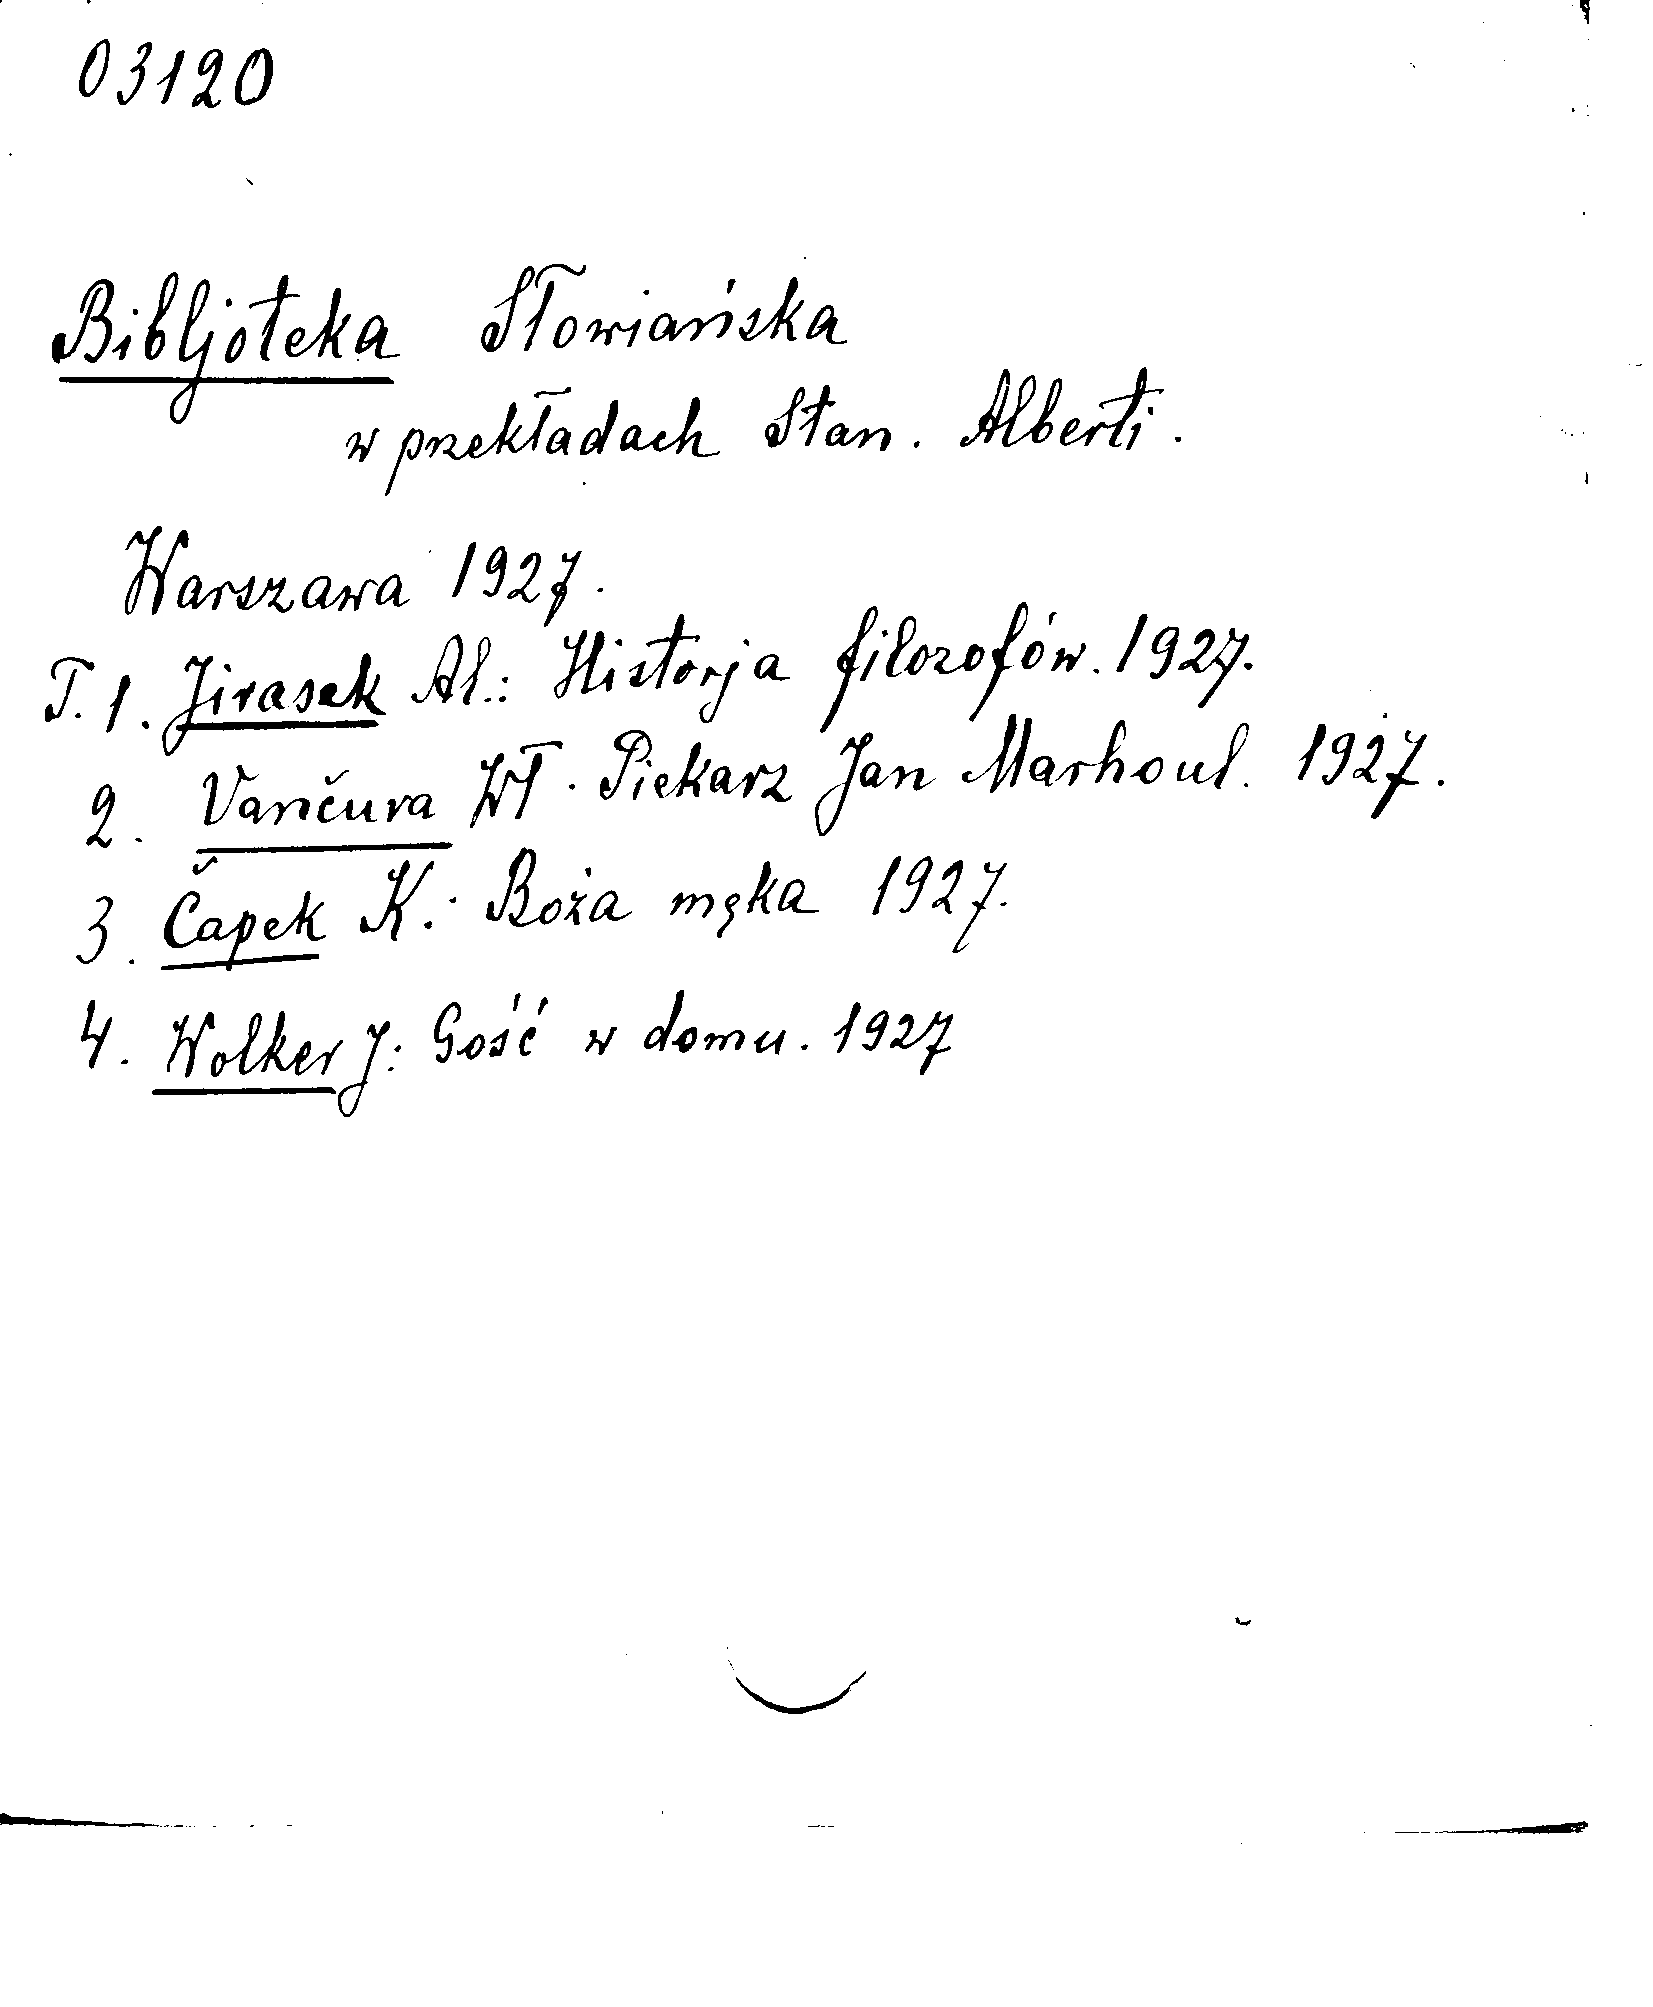 03120
Bibljoteka Słowiańska
w przekładach Stan. Alberti.
Warszawa 1927.
T. 1. Jirasek Al.: Historja filozofów. 1927.
2. Vančura Wł. Piekarz Jan Marhoul. 1927.
3. Čapek K.: Boża męka 1927.
4. Wolker J: Gość w domu. 1927